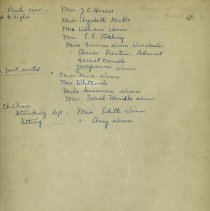 Back row - Mrs J C Harris
to right Mrs Elizabeth Watts
Mrs William Winn
Mrs. E. E.
Miss Bernices Winn, Winchester
" Eleanor Prentiss, Belmont
Harriet Daniels
Georgeanna Winn
front, seated Miss Nina Winn
Mrs Whitcomb
Miss Susanna Winn
Mrs. Sarah Daniels Winn
Children
Standing left - Miss Edith Winn
Sitting " Amy Winn